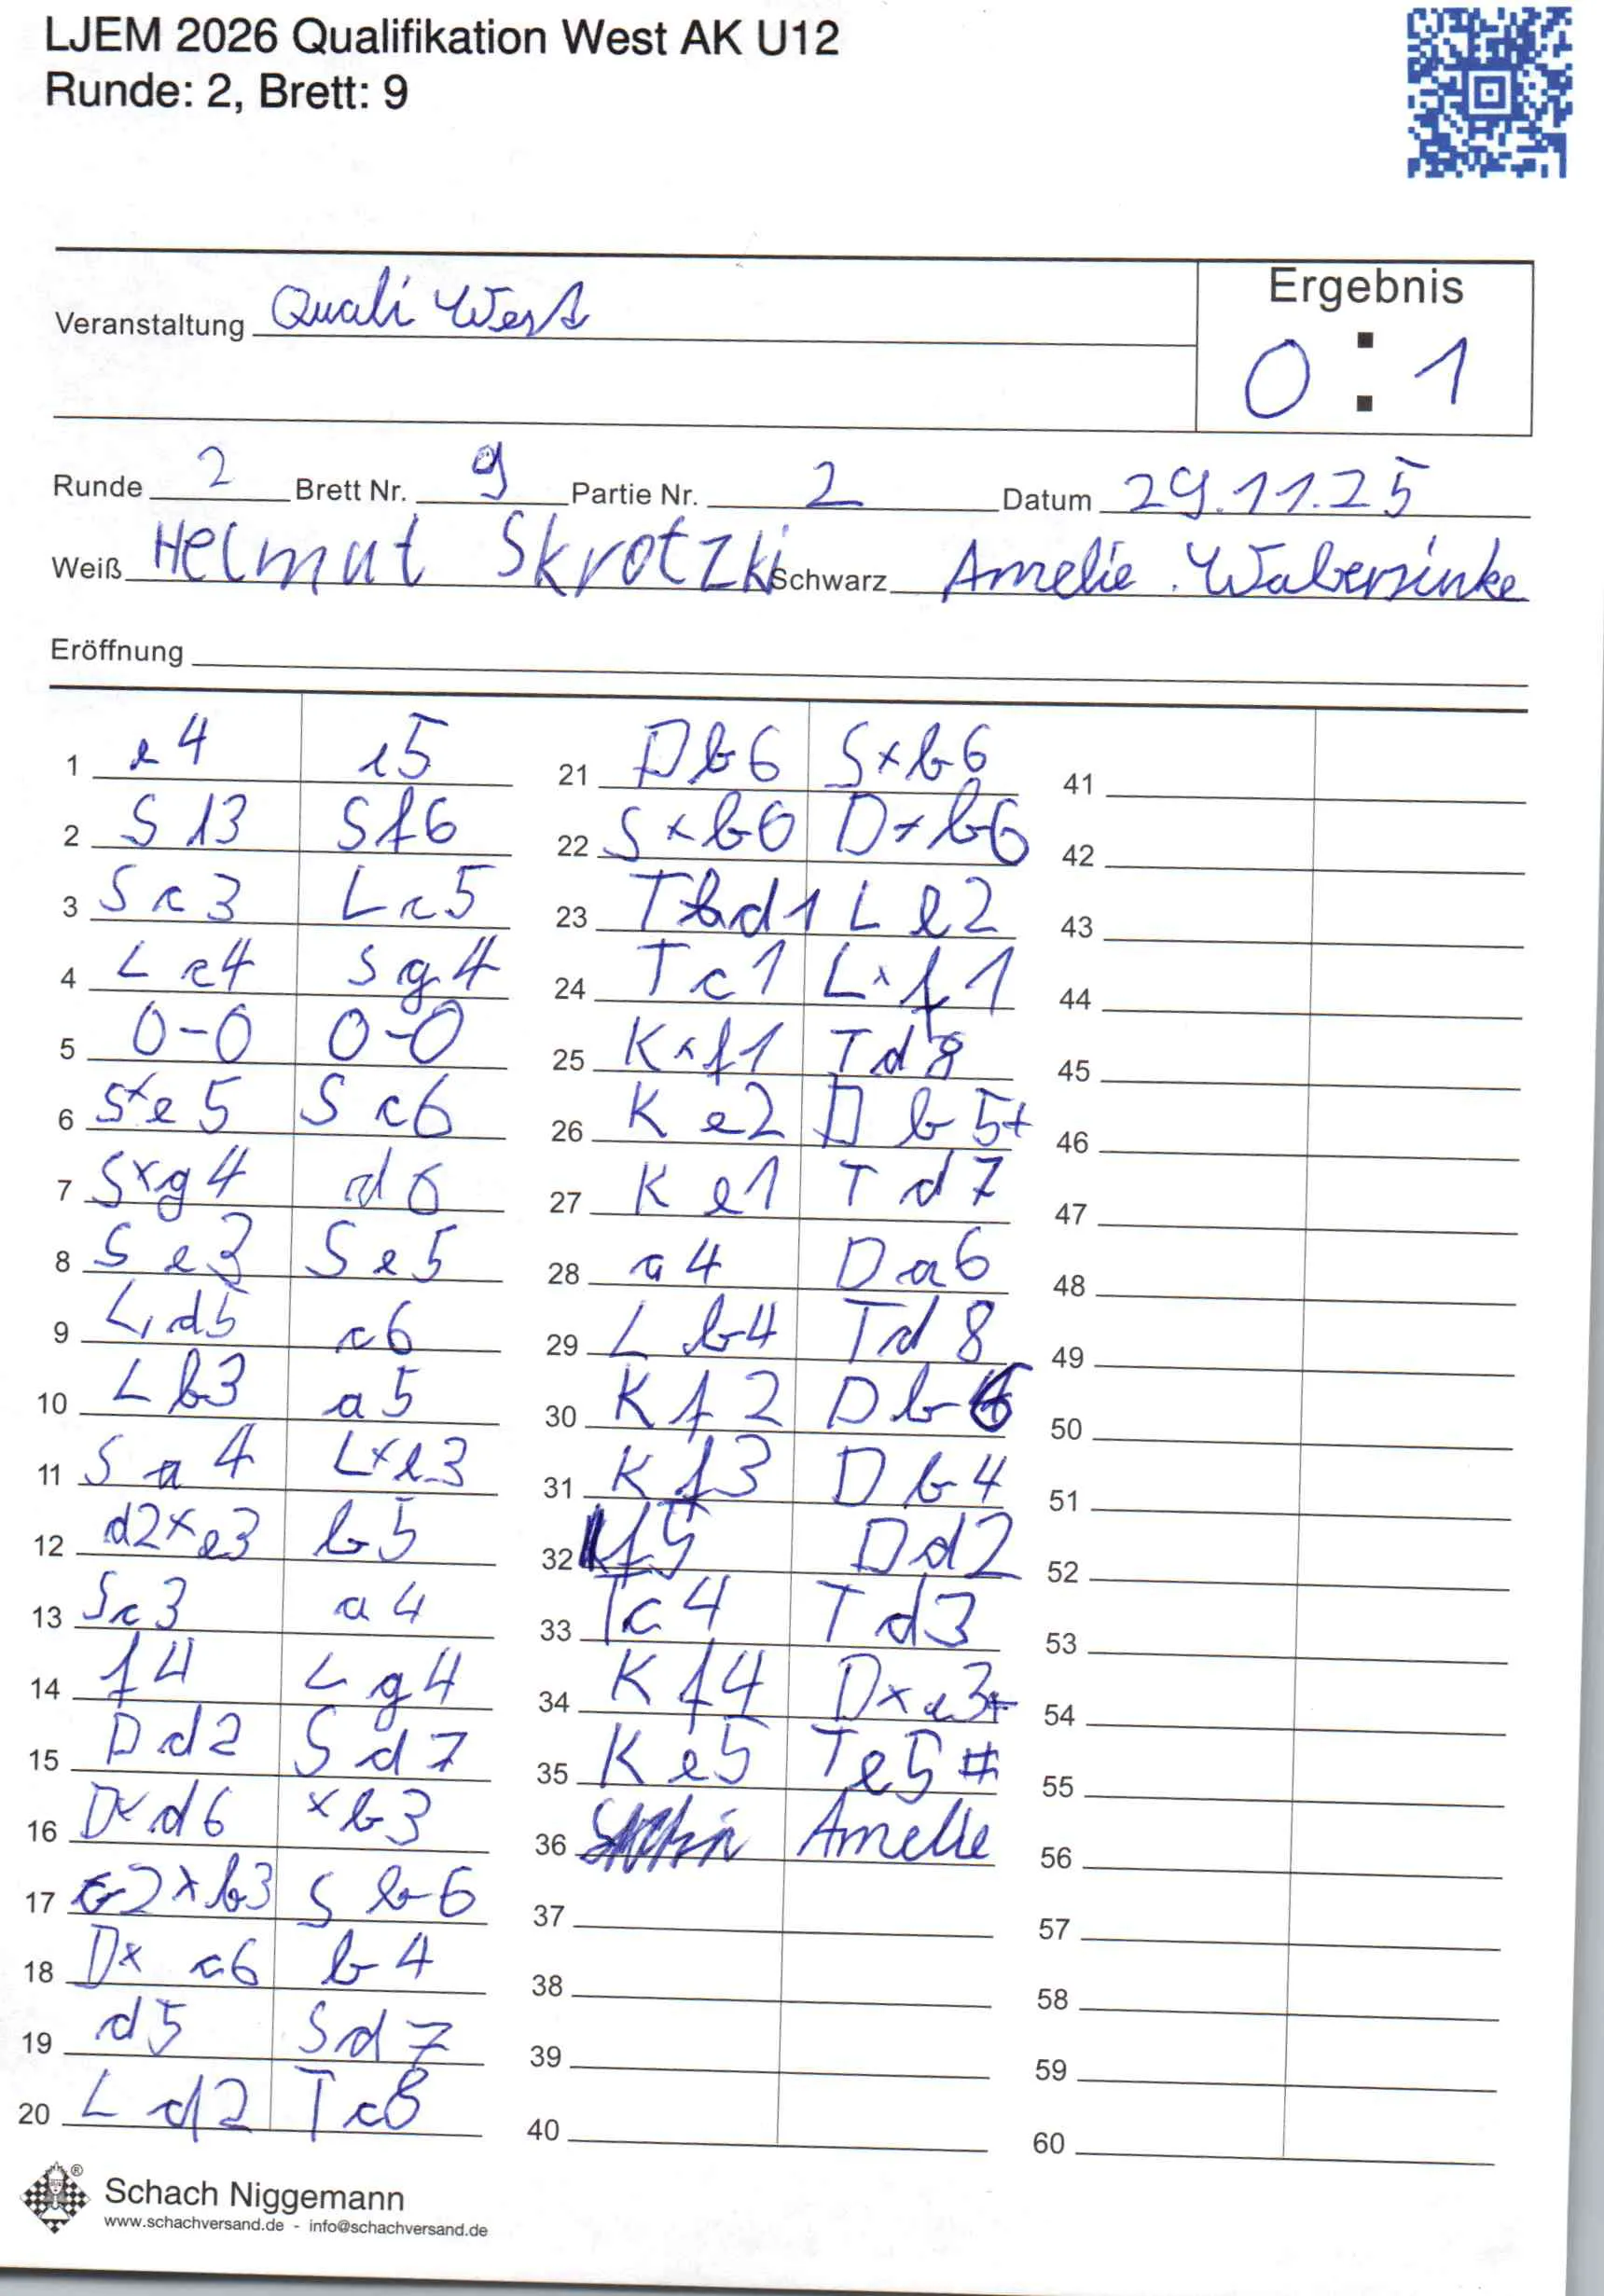 LJEM 2026 Qualifikation West AK U12
Runde: 2, Brett: 9
Veranstaltung Quali West
Ergebnis
0 : 1
Runde 2 Brett Nr. 9 Partie Nr. 2 Datum 29.11.25
Weiß Helmut Skrotzki Schwarz Amelie Wabersinke
Eröffnung
1 e4 e5
2 Sf3 Sf6
3 Sc3 Lc5
4 Lc4 Sg4
5 0-0 0-0
6 Sxe5 Sc6
7 Sxg4 d6
8 Se3 Se5
9 Ld5 c6
10 Lb3 a5
11 Sa4 Lxe3
12 d2xe3 b5
13 Sc3 a4
14 f4 Lg4
15 Dd2 Sd7
16 Dxd6 xb3
17 c2xb3 Sb6
18 Dxc6 b4
19 d5 Sd7
20 Ld2 Tc8
21 Db6 Sxb6
22 Sxb6 Dxb6
23 Td1 Le2
24 Tc1 Lxf1
25 Kxf1 Td8
26 Ke2 Db5+
27 Ke1 Td7
28 a4 Da6
29 Lb4 Td8
30 Kf2 Db6
31 Kf3 Db4
32 f5 Dd2
33 Tc4 Td3
34 Kf4 Dxe3+
35 Ke5 Te5#
36 Amelie
37
38
39
40
41
42
43
44
45
46
47
48
49
50
51
52
53
54
55
56
57
58
59
60
Schach Niggemann
www.schachversand.de - info@schachversand.de